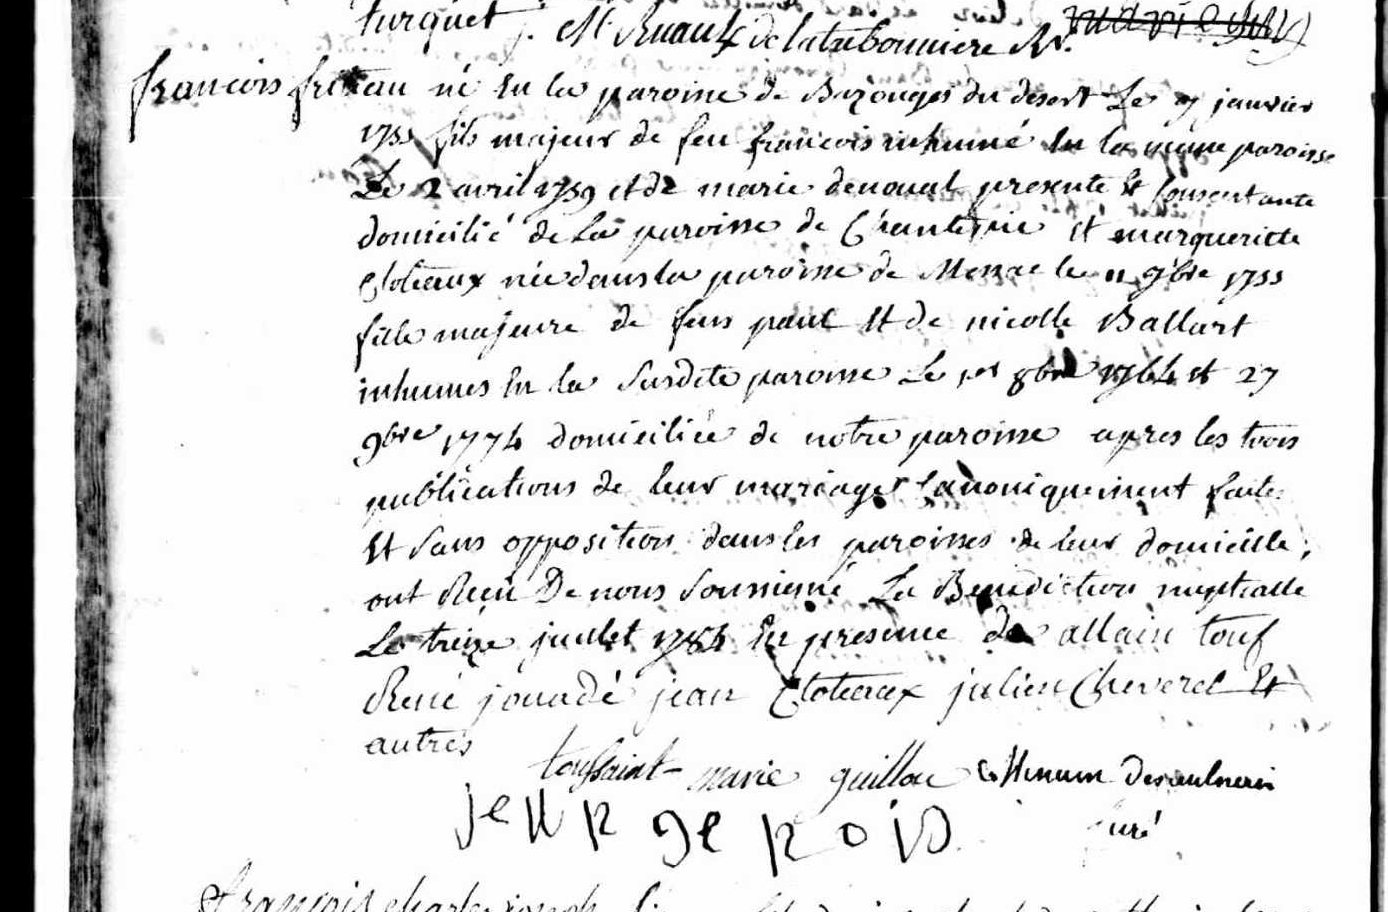 turquet j. M Ruault de latribonniere Rr.
françois freteau né En la paroisse de Bazouges du desert Le 7 janvier
1755 fils majeur de feu françois inhumé En la même paroisse
Le 2 avril 1759 et de marie denoual presente Et consentante
domicilié de La paroisse de Chantepie Et margueritte
Cloteaux née dans la paroisse de Messac le 11 9bre 1755
fille majeure de feus paul Et de nicolle Ballart
inhumes En la Susdite paroisse Le 1er 8bre 1764 et 27
9bre 1774 domiciliée de notre paroisse apres les trois
publications de leur mariage Canoniquement faites
Et Sans opposition dans les paroisses de leur domicille,
ont Reçu De nous Soussigné La Benediction nuptialle
Le treize juillet 1784 En presence de allain touf
René jouadé jean Cloteaux julien Cheverel Et
autres
toussaint marie guillou
curé
françois charles joseph